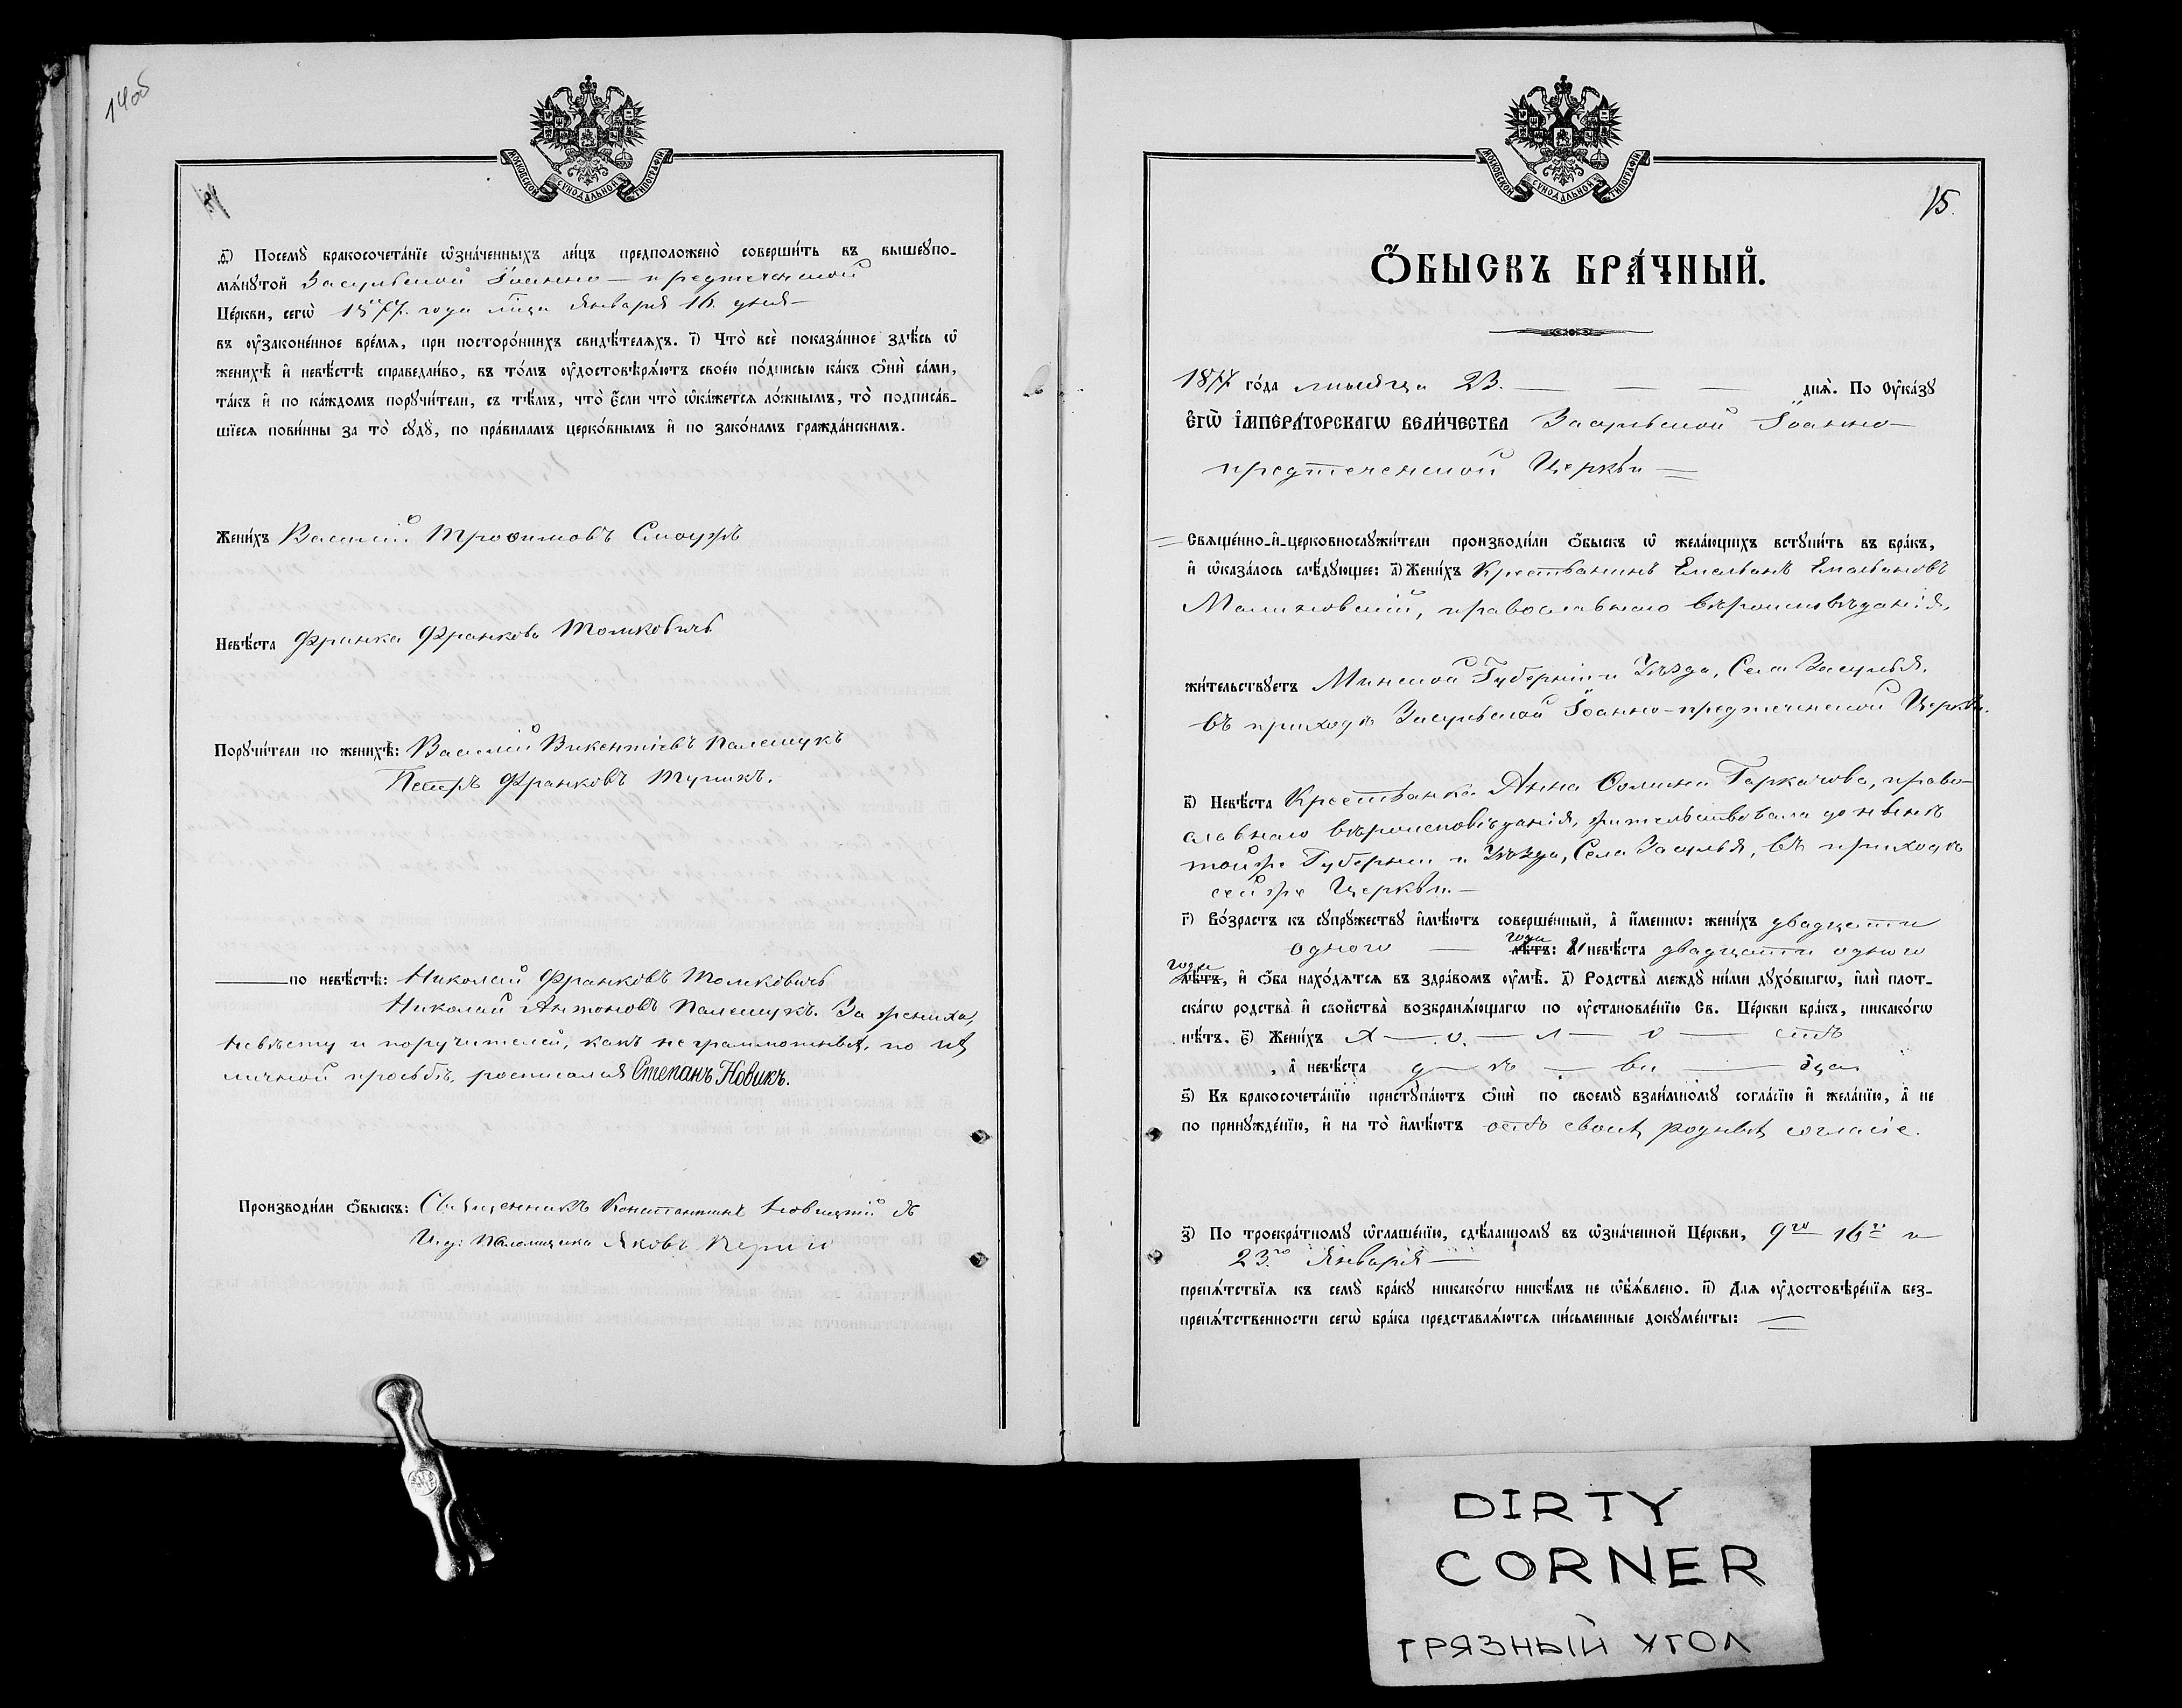 14об
МОСКОВСКОЙ СѴНОДАЛЬНОЙ ТИПОГРАФІИ
д҃) Посемꙋ̀ бракосочета́нїе ѡ҆зна́ченныхъ ли́цъ предположено̀ соверши́ть въ вышеꙋпо-
мѧ́нꙋтой Засульской Іоанно-предтеченской
Це́ркви, сегѡ̀ 1877. года мца Января 16. дня
въ ᲂу҆законе́нное вре́мѧ, при посторо́ннихъ свидѣ́телѧхъ. і҃) Что̀ всѐ показа́нное здѣ́сь ѡ҆
женихѣ̀ и҆ невѣ́стѣ справедли́во, въ то́мъ ᲂу҆достовѣрѧ́ютъ свое́ю по́дписью ка́къ ѻ҆нѝ са́ми,
та́къ и҆ по ка́ждомъ порꙋчи́тели, съ тѣ́мъ, что̀ є҆́сли что̀ ѡ҆ка́жетсѧ ло́жнымъ, то̀ подписа́в-
шїесѧ пови́нны за то̀ сꙋдꙋ̀, по пра́виламъ церко́внымъ и҆ по зако́намъ гражда́нскимъ.
Жени́хъ Василій Трофимовъ
Невѣ́ста Франка Франкова Томковичъ
Порꙋчи́тели по женихѣ̀: Василій Викентіевъ Палещукъ
Петръ Франковъ Тупикъ.
по невѣ́стѣ: Николай Франковъ Томковичъ
Николай Антоновъ Палещукъ. За жениха,
невѣсту и поручителей, какъ неграмотныхъ, по ихъ
личной просьбѣ, росписался Степанъ Новикъ.
Производи́ли ѻ҆́быскъ: Священникъ Константинъ Новицкій
И.д: Паломщика Яковъ
15.
МОСКОВСКОЙ СѴНОДАЛЬНОЙ ТИПОГРАФІИ
Ѻ҆́БЫСКЪ БРА́ЧНЫЙ.
1877 го́да мѣсяца 23. днѧ̀. По ᲂу҆ка́зꙋ
Є҆ГѠ̀ І҆МПЕРА́ТОРСКАГѠ ВЕЛИ́ЧЕСТВА Засульской Іоанно-
предтеченской Церкви
Свѧще́нно-и҆-церковнослꙋжи́тели производи́ли ѻ҆́быскъ ѡ҆ жела́ющихъ встꙋпи́ть въ бра́къ,
и҆ ѡ҆каза́лось слѣ́дꙋющее: а҃) Жени́хъ Крестьянинъ Емельянъ Емельяновъ
Малиновскій, православнаго вѣроисповѣданія,
жи́тельствꙋетъ Минской Губерніи и Уѣзда, Села Засулья,
въ приходѣ Засульской Іоанно-предтеченской Церкви.
в҃) Невѣ́ста Крестьянка Анна Ѳомина Горкачова, право-
славнаго вѣроисповѣданія, жительствовала до нынѣ
тойже Губерніи и Уѣзда, Села Засулья, въ приходѣ
сейже Церкви.
г҃) Во́зрастъ къ сꙋпрꙋ́жествꙋ и҆мѣ́ютъ соверше́нный, а҆ и҆́меннѡ: жени́хъ двадцати
одного года лѣ́тъ: а҆ невѣ́ста двадцати одного
года лѣ́тъ, и҆ ѻ҆́ба нахо́дѧтсѧ въ здра́вомъ ᲂу҆мѣ̀. д҃) Родства̀ междꙋ̀ ни́ми дꙋхо́внагѡ, и҆лѝ плот-
ска́гѡ родства̀ и҆ сво́йства̀ возбранѧ́ющагѡ по ᲂу҆становле́нїю Св. Це́ркви бра́къ, никако́гѡ
нѣ́тъ. є҃) Жени́хъ х — о — л — о — стъ
, а҆ невѣ́ста д — ѣ — ви — ца
ѕ҃) Къ бракосочета́нїю пристꙋпа́ютъ ѻ҆нѝ по своемꙋ̀ взаи́мномꙋ согла́сїю и҆ жела́нїю, а҆ не
по принꙋжде́нїю, и҆ на то̀ и҆мѣ́ютъ отъ своихъ родныхъ согласіе.
з҃) По троекра́тномꙋ ѡ҆глаше́нїю, сдѣ́ланномꙋ въ ѡ҆зна́ченной Це́ркви, 9го 16го и
23.го Января
препѧ́тствїѧ къ семꙋ̀ бра́кꙋ никако́гѡ никѣ́мъ не ѡ҆б̾ѧ́влено. и҃) Длѧ ᲂу҆достовѣре́нїѧ без-
препѧ́тственности сегѡ̀ бра́ка представлѧ́ютсѧ пи́сьменные докꙋме́нты:
DIRTY
CORNER
ГРЯЗНЫЙ УГОЛ